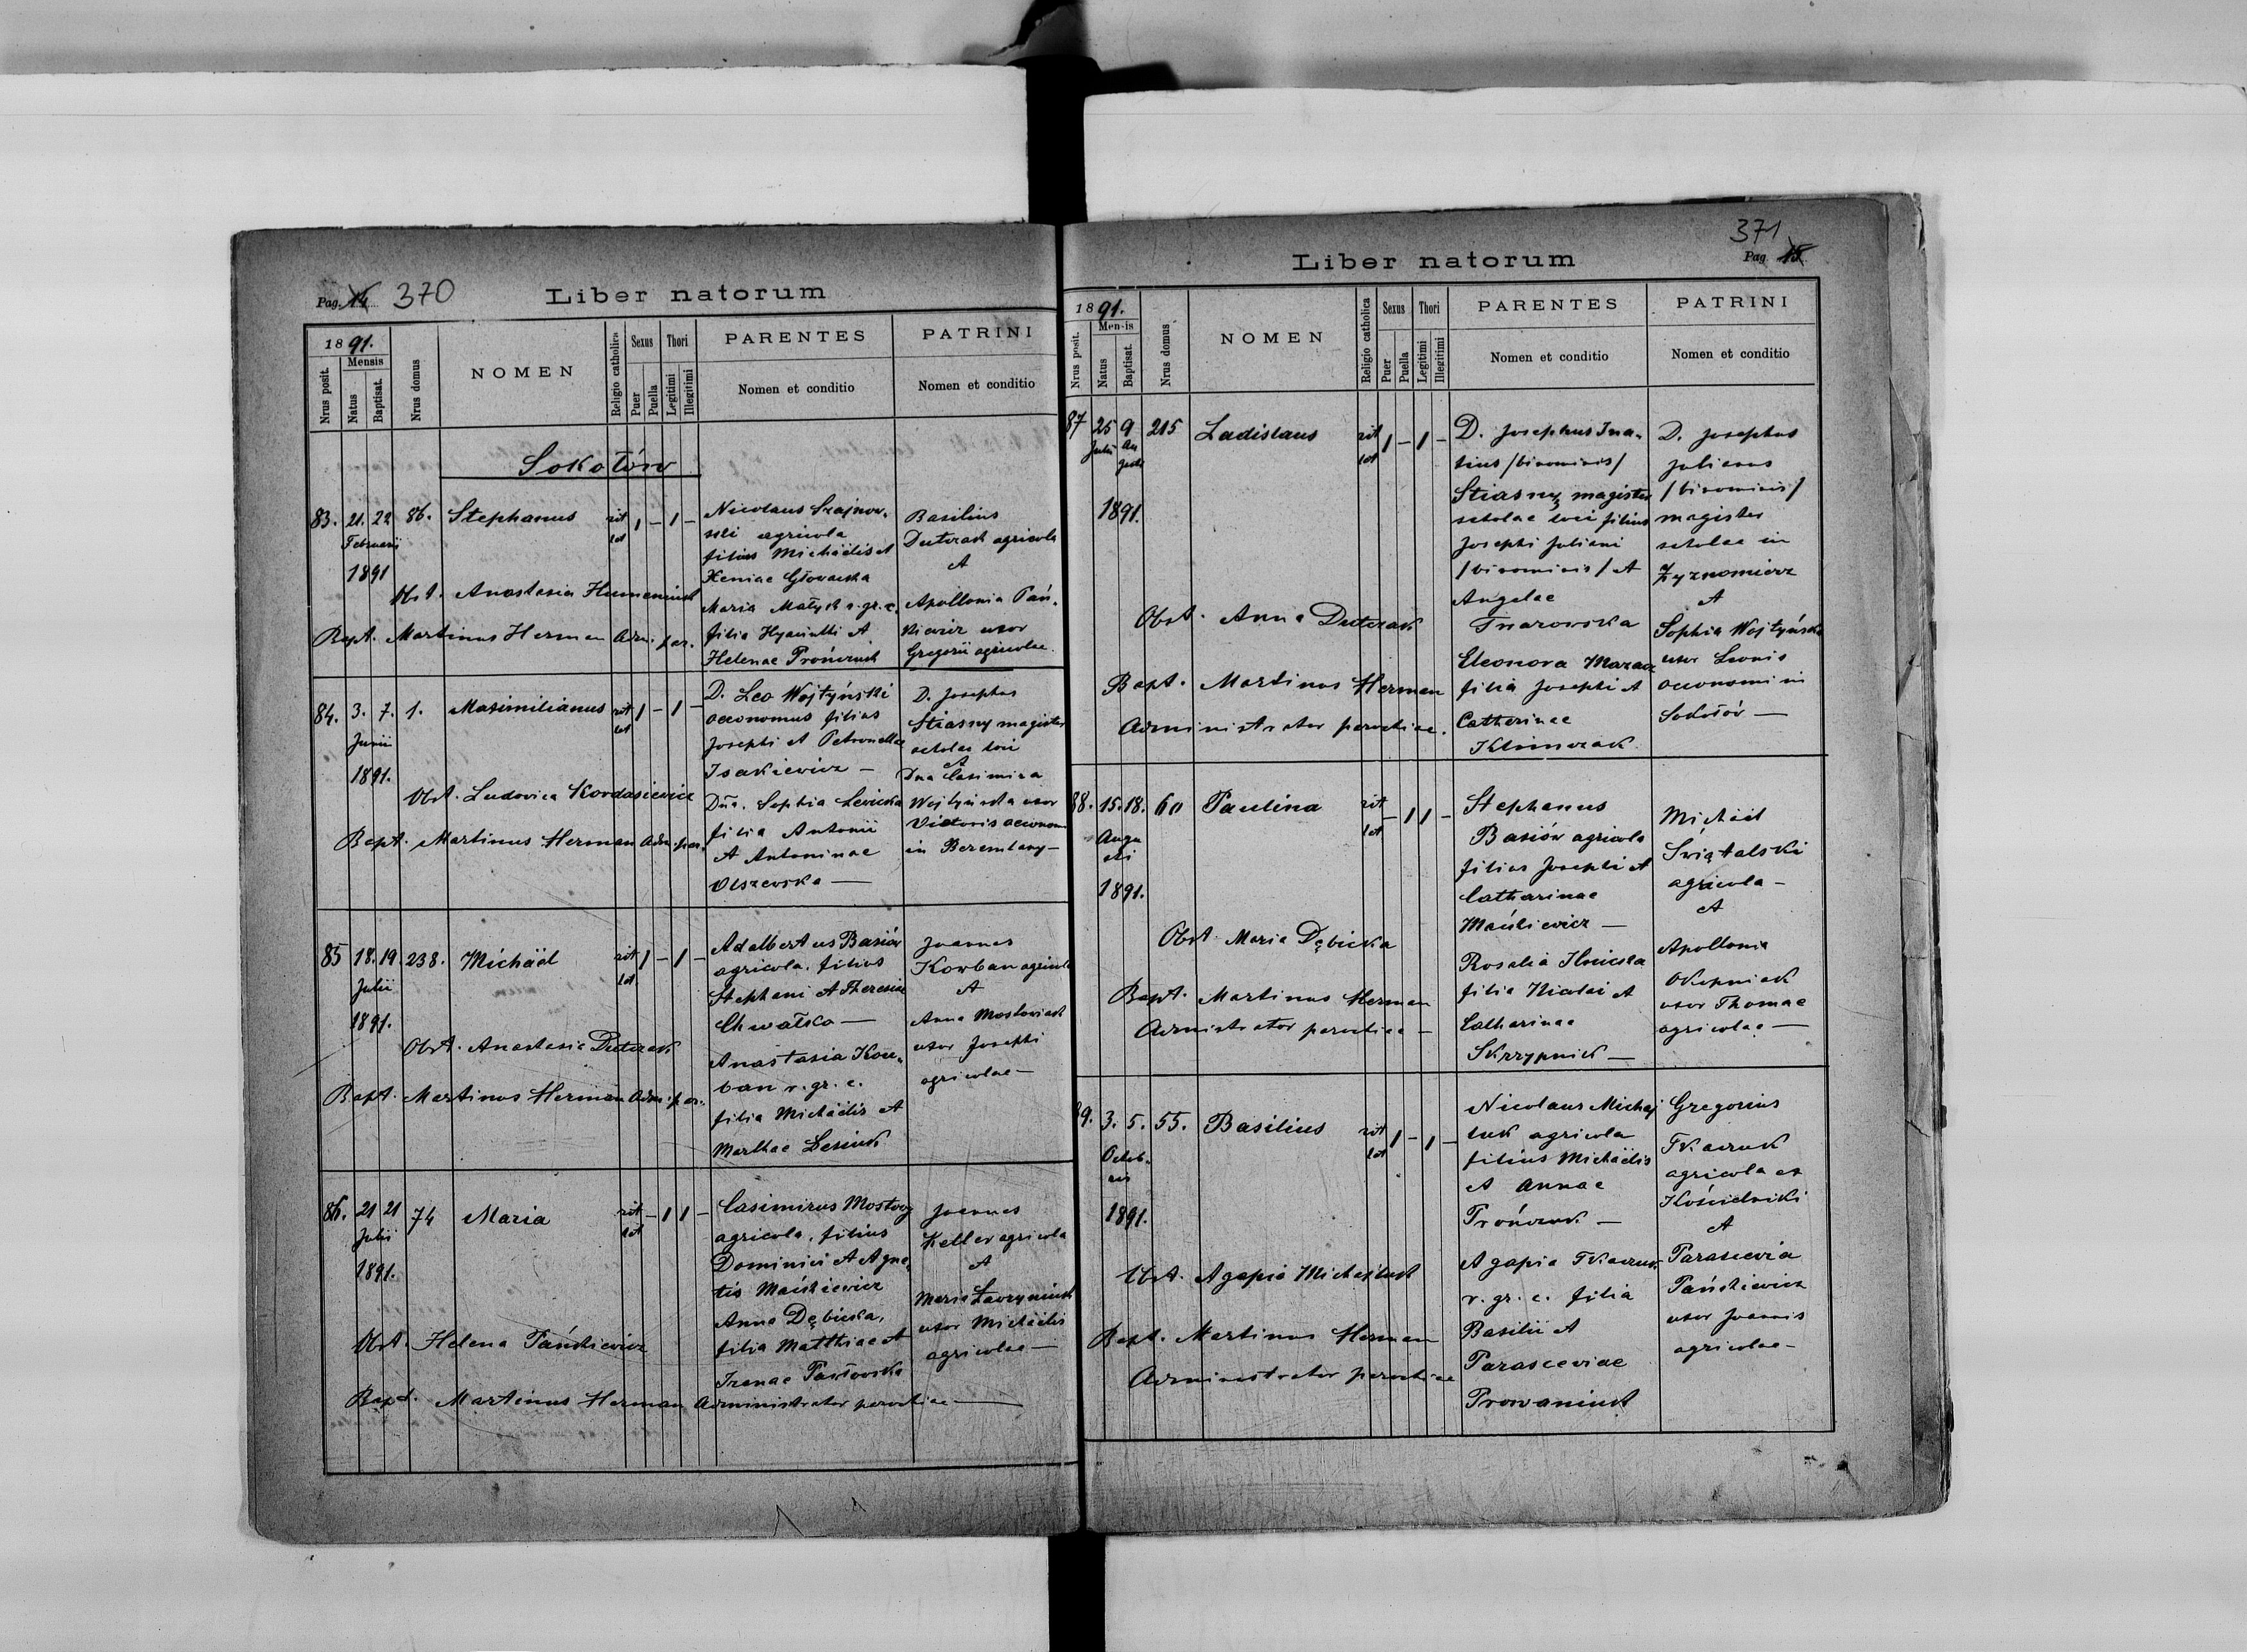 Pag. 14 370
Liber natorum
1891.
Nrus posit.
Mensis
Natus
Baptisat.
Nrus domus
NOMEN
Religio catholica
Sexus
Puer
Puella
Thori
Legitimi
Illegitimi
PARENTES
Nomen et conditio
PATRINI
Nomen et conditio
Sokołów
83. 21. 22 86. Stephanus rit 1 – 1 –
Februarii lat
1891
Obst. Anastasia Humeniuk
Bapt. Martinus Herman Adm. par.
Nicolaus Szajnow-
ski agricola
filius Michäelis et
Xeniae Głowacka
Maria Małyk r. gr. c.
filia Hyacinthi et
Helenae Prończuk
Basilius
Dutczak agricola
et
Apollonia Pań-
kiewicz uxor
Gregorii agricolae.
84. 3. 7. 1. Maximilianus rit 1 – 1 –
Junii lat
1891.
Obst. Ludovica Kordasiewicz
Bapt. Martinus Herman Adm. par.
D. Leo Wojtyński
oeconomus filius
Josephi et Petronellae
Isakiewicz –
Dna. Sophia Levicka
filia Antonii
et Antoninae
Olszewska –
D. Josephus
Stiasny magister
scholae loci
et
Dna Casimira
Wojtyńska uxor
Victoris oeconomi
in Beremlany –
85 18. 19. 238. Michäel rit 1 – 1 –
Julii lat
1891.
Obst. Anastasia Dutczak
Bapt. Martinus Herman Adm. par.
Adalbertus Basiór
agricola, filius
Stephani et Theresiae
Chwałko –
Anastasia Kor-
ban r. gr. c.
filia Michäelis et
Marthae Lesiuk
Joannes
Korban agricola
et
Anna Mostowiak
uxor Josephi
agricolae –
86. 21 21 74 Maria rit – 1 1 –
Julii lat
1891.
Obst. Helena Pańkiewicz
Bapt. Martinus Herman Administrator parochiae –
Casimirus Mostowy
agricola, filius
Dominici et Agne-
tis Maćkiewicz
Anna Dębicka,
filia Matthiae et
Irenae Pawłowska
Joannes
Keller agricola
et
Maria Ławryniuk
uxor Michäelis
agricolae –
371
Pag 15
Liber natorum
1891.
Nrus posit.
Mensis
Natus
Baptisat.
Nrus domus
NOMEN
Religio catholica
Sexus
Puer
Puella
Thori
Legitimi
Illegitimi
PARENTES
Nomen et conditio
PATRINI
Nomen et conditio
87 25 9 215 Ladislaus rit 1 – 1 –
Julii Au lat
gusti
1891.
Obst. Anna Dutczak
Bapt. Martinus Herman
Administrator parochiae.
D. Josephus Ina-
tius /binominis/
Stiasny magister
scholae loci filius
Josephi Juliani
/binominis/ et
Angelae
Twarowska
Eleonora Mazur
filia Josephi et
Catherinae
Klimczak
D. Josephus
Julianus
/binominis/
magister
scholae in
Żyznomierz
et
Sophia Wojtyńska
uxor Leonis
oeconomi in
Sokołów –
88. 15. 18. 60 Paulina rit – 1 1 –
Augu lat
sti
1891.
Obst. Maria Dębicka
Bapt. Martinus Herman
Administrator parochiae –
Stephanus
Basiór agricola
filius Josephi et
Catharinae
Maćkiewicz –
Rosalia Ilnicka
filia Nicolai et
Catharinae
Skrzypnik –
Michäel
Świątalski
agricola –
et
Apollonia
Okopniak
uxor Thomae
agricolae –
89. 3. 5. 55. Basilius rit 1 – 1 –
Octob- lat
ris
1891.
Obst. Agapia Michajluk
Bapt. Martinus Herman
Administrator parochiae
Nicolaus Michaj
luk agricola
filius Michäelis
et Annae
Prończuk –
Agapia Tkaczuk
r. gr. c. filia
Basilii et
Parasceviae
Prowaniuk
Gregorius
Tkaczuk
agricola ex
Kościelniki
et
Parascevia
Pańkiewicz
uxor Joannis
agricolae –